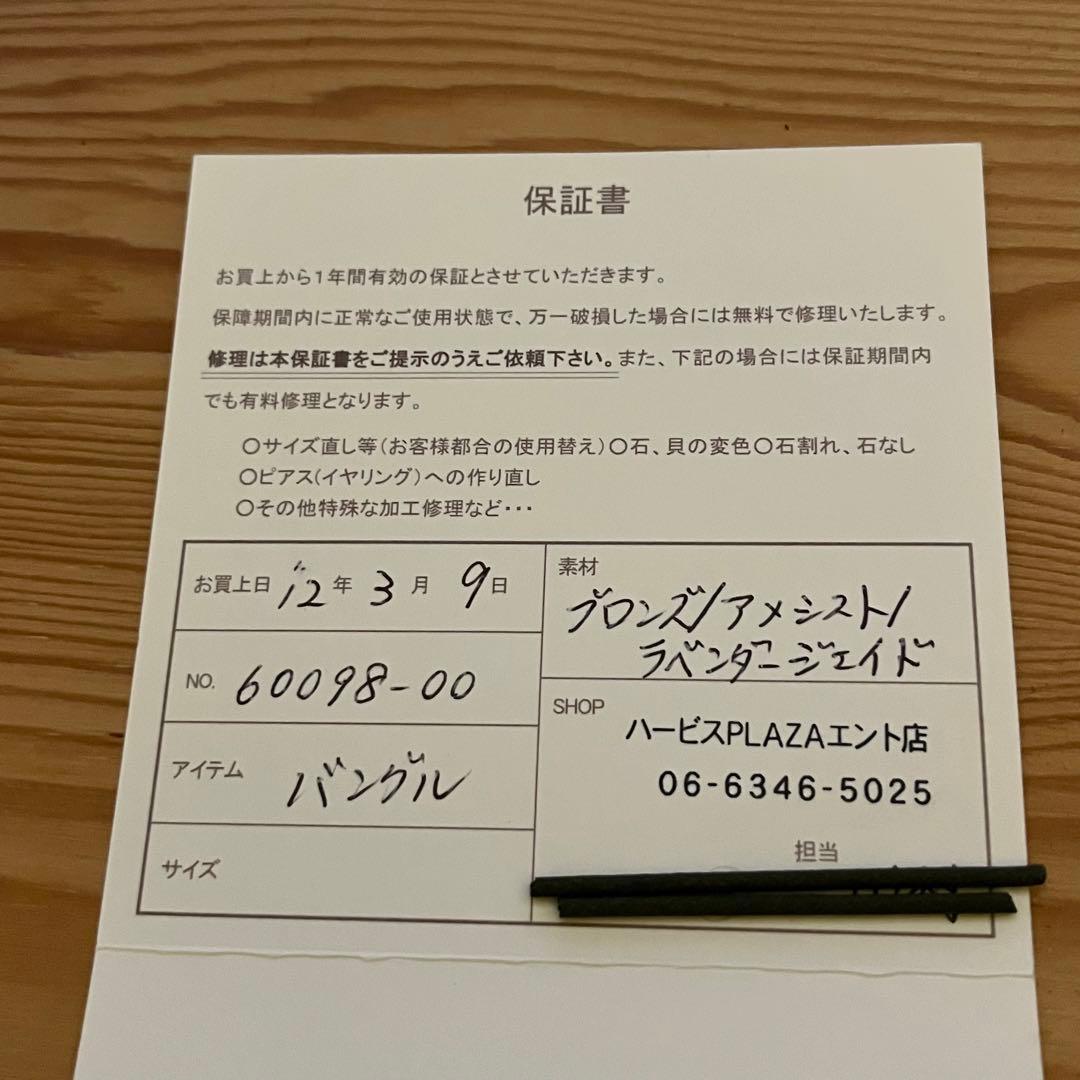 保証書
お買上から1年間有効の保証とさせていただきます。
保障期間内に正常なご使用状態で、万一破損した場合には無料で修理いたします。
修理は本保証書をご提示のうえご依頼下さい。また、下記の場合には保証期間内
でも有料修理となります。
○サイズ直し等(お客様都合の使用替え)○石、貝の変色○石割れ、石なし
○ピアス(イヤリング)への作り直し
○その他特殊な加工修理など・・・
お買上日 '12年 3月 9日
NO. 60098-00
アイテム バングル
サイズ
素材
ブロンズ/アメシスト/
ラベンダージェイド
SHOP
ハービスPLAZAエント店
06-6346-5025
担当